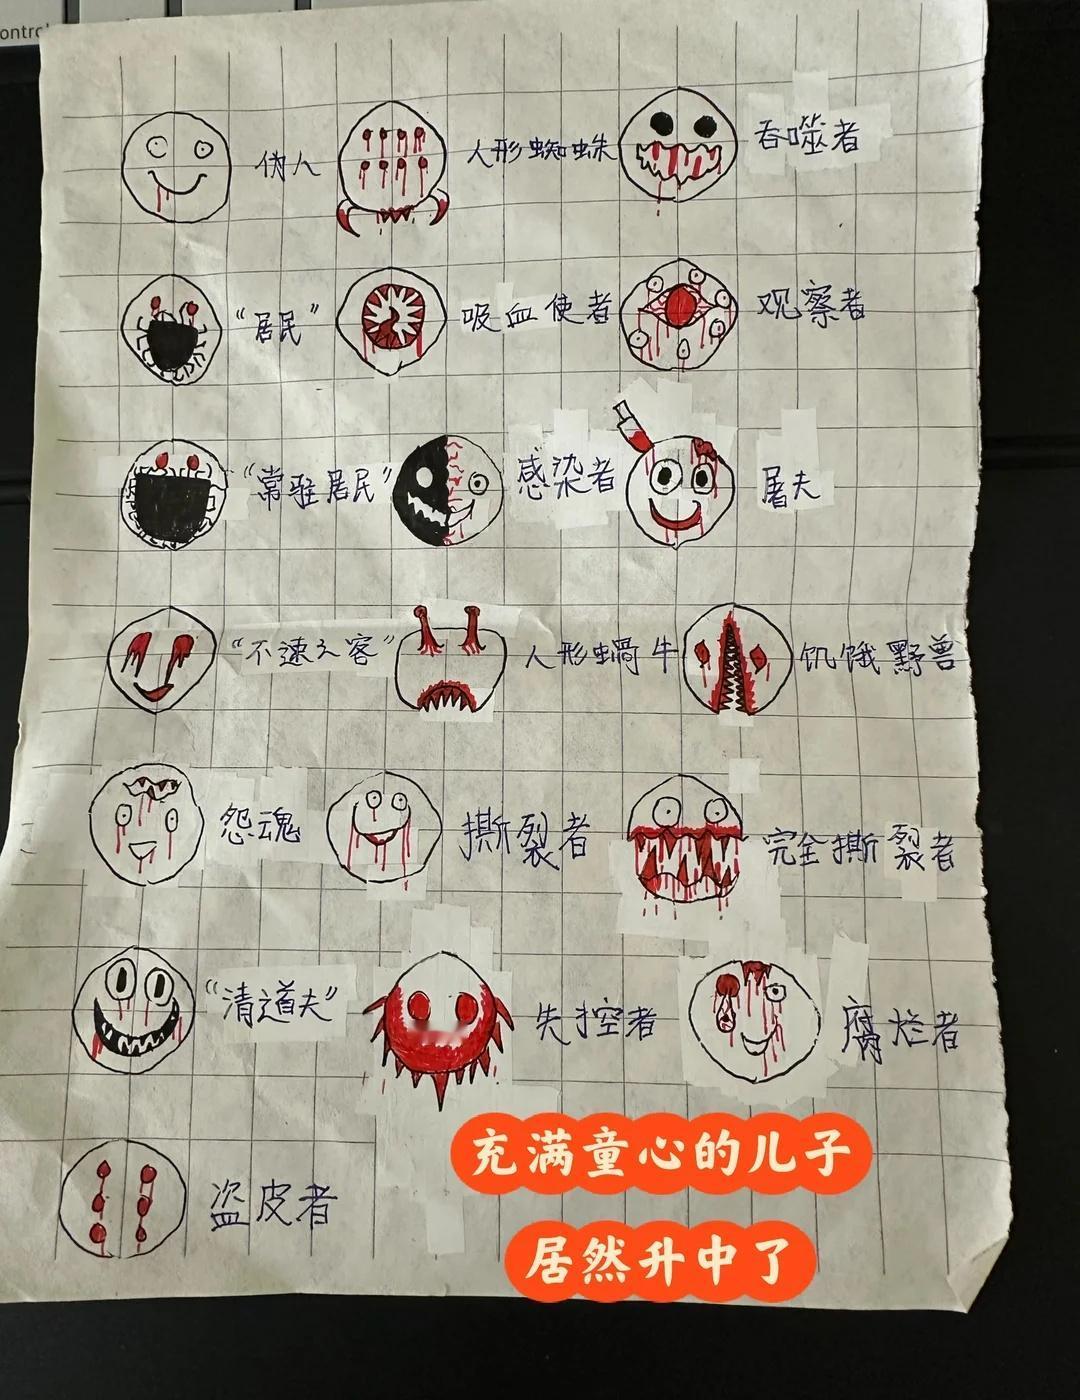 ontrol
伪人 人形蜘蛛 吞噬者
“居民” 吸血使者 观察者
“常驻居民” 感染者 屠夫
“不速之客” 人形蝸牛 饥饿野兽
怨魂 撕裂者 完全撕裂者
“清道夫” 失控者 腐烂者
盗皮者
充满童心的儿子
居然升中了